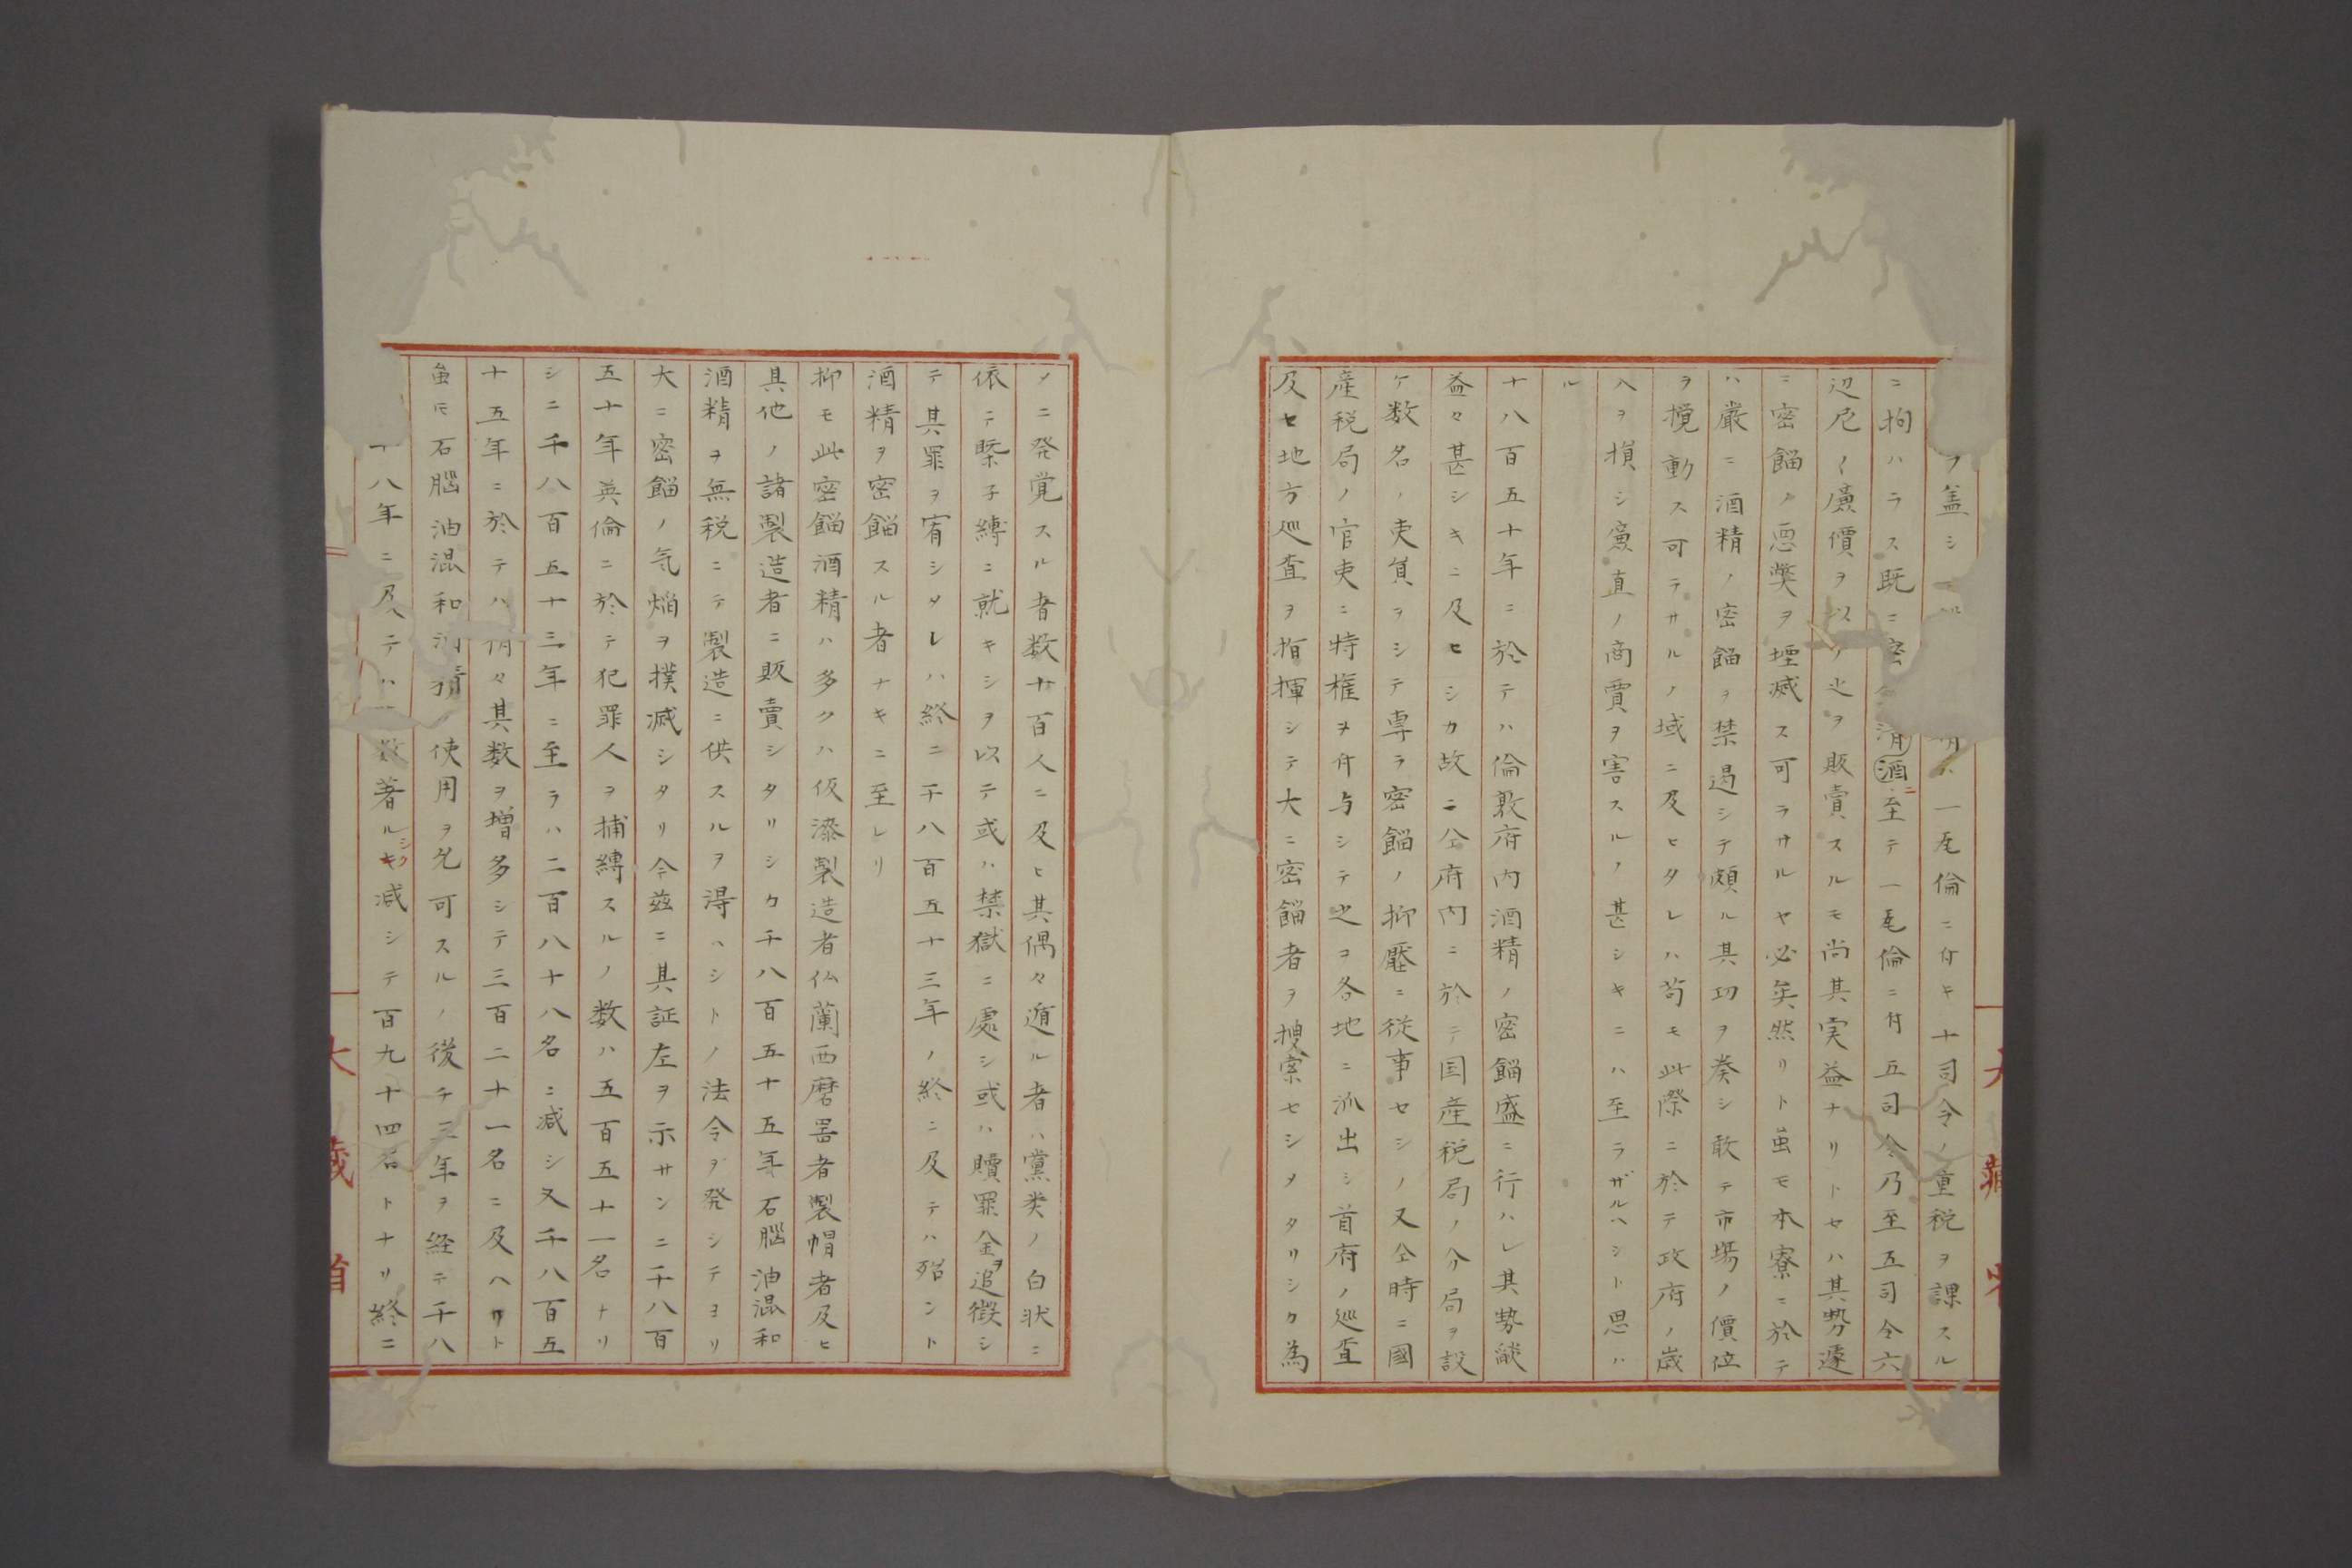 ヲ盖シ 一瓦倫ニ付キ十司令ノ重税ヲ課スル
ニ拘ハラス既ニ密 酒ニ至テ一瓦倫ニ付五司令乃至五司令六
辺尼ノ廉價ヲ以 之ヲ販賣スルモ尚其実益ナリトセハ其勢遽
ニ密餾ノ悪弊ヲ堙滅ス可ラサルヤ必矣然リト虽モ本寮ニ於テ
ハ嚴ニ酒精ノ密餾ヲ禁遏シテ頗ル其功ヲ奏シ敢テ市場ノ價位
ヲ攪動ス可ラサルノ域ニ及ヒタレハ苟モ此際ニ於テ政府ノ歳
入ヲ損シ廉直ノ商賈ヲ害スルノ甚シキニハ至ラザルヘシト思ハ
ル
十八百五十年ニ於テハ倫敦府内酒精ノ密餾盛ニ行ハレ其勢
益々甚シキニ及セシカ故ニ仝府内ニ於テ国産税局ノ分局ヲ設
ケ数名ノ吏員ヲシテ専ラ密餾ノ抑壓ニ従事セシノ又仝時ニ國
産税局ノ官吏ニ特権ヲ付与シテ之ヲ各地ニ派出シ首府ノ巡査
及セ地方巡査ヲ指揮シテ大ニ密餾者ヲ捜索セシメタリシカ為
メニ発覚スル者数十百人ニ及ヒ其偶々遁ル者ハ黨类ノ白状ニ
依テ槩子縛ニ就キシヲ以テ或ハ禁獄ニ處シ或ハ贖罪金ヲ追徴シ
テ其罪ヲ宥シタレハ終ニ千八百五十三年ノ終ニ及テハ殆ント
酒精ヲ密餾スル者ナキニ至レリ
抑モ此密餾酒精ハ多クハ仮漆製造者仏蘭西磨畧者製帽者及ヒ
其他ノ諸製造者ニ販賣シタリシカ千八百五十五年石腦油混和
酒精ヲ無税ニテ製造ニ供スルヲ得ハシトノ法令ヲ発シテヨリ
大ニ密餾ノ気焔ヲ撲滅シタリ今玆ニ其証左ヲ示サンニ千八百
五十年英倫ニ於テ犯罪人ヲ捕縛スルノ数ハ五百五十一名ナリ
シニ千八百五十三年ニ至ラハ二百八十八名ニ減シ又千八百五
十五年ニ於テハ稍々其数ヲ増多シテ三百二十一名ニ及ヘリト
虽モ石腦油混和酒精 使用ヲ允可スルノ後チ三年ヲ経テ千八
十八年ニ及テハ 数著ルシク減シテ百九十四名トナリ終ニ
大藏省